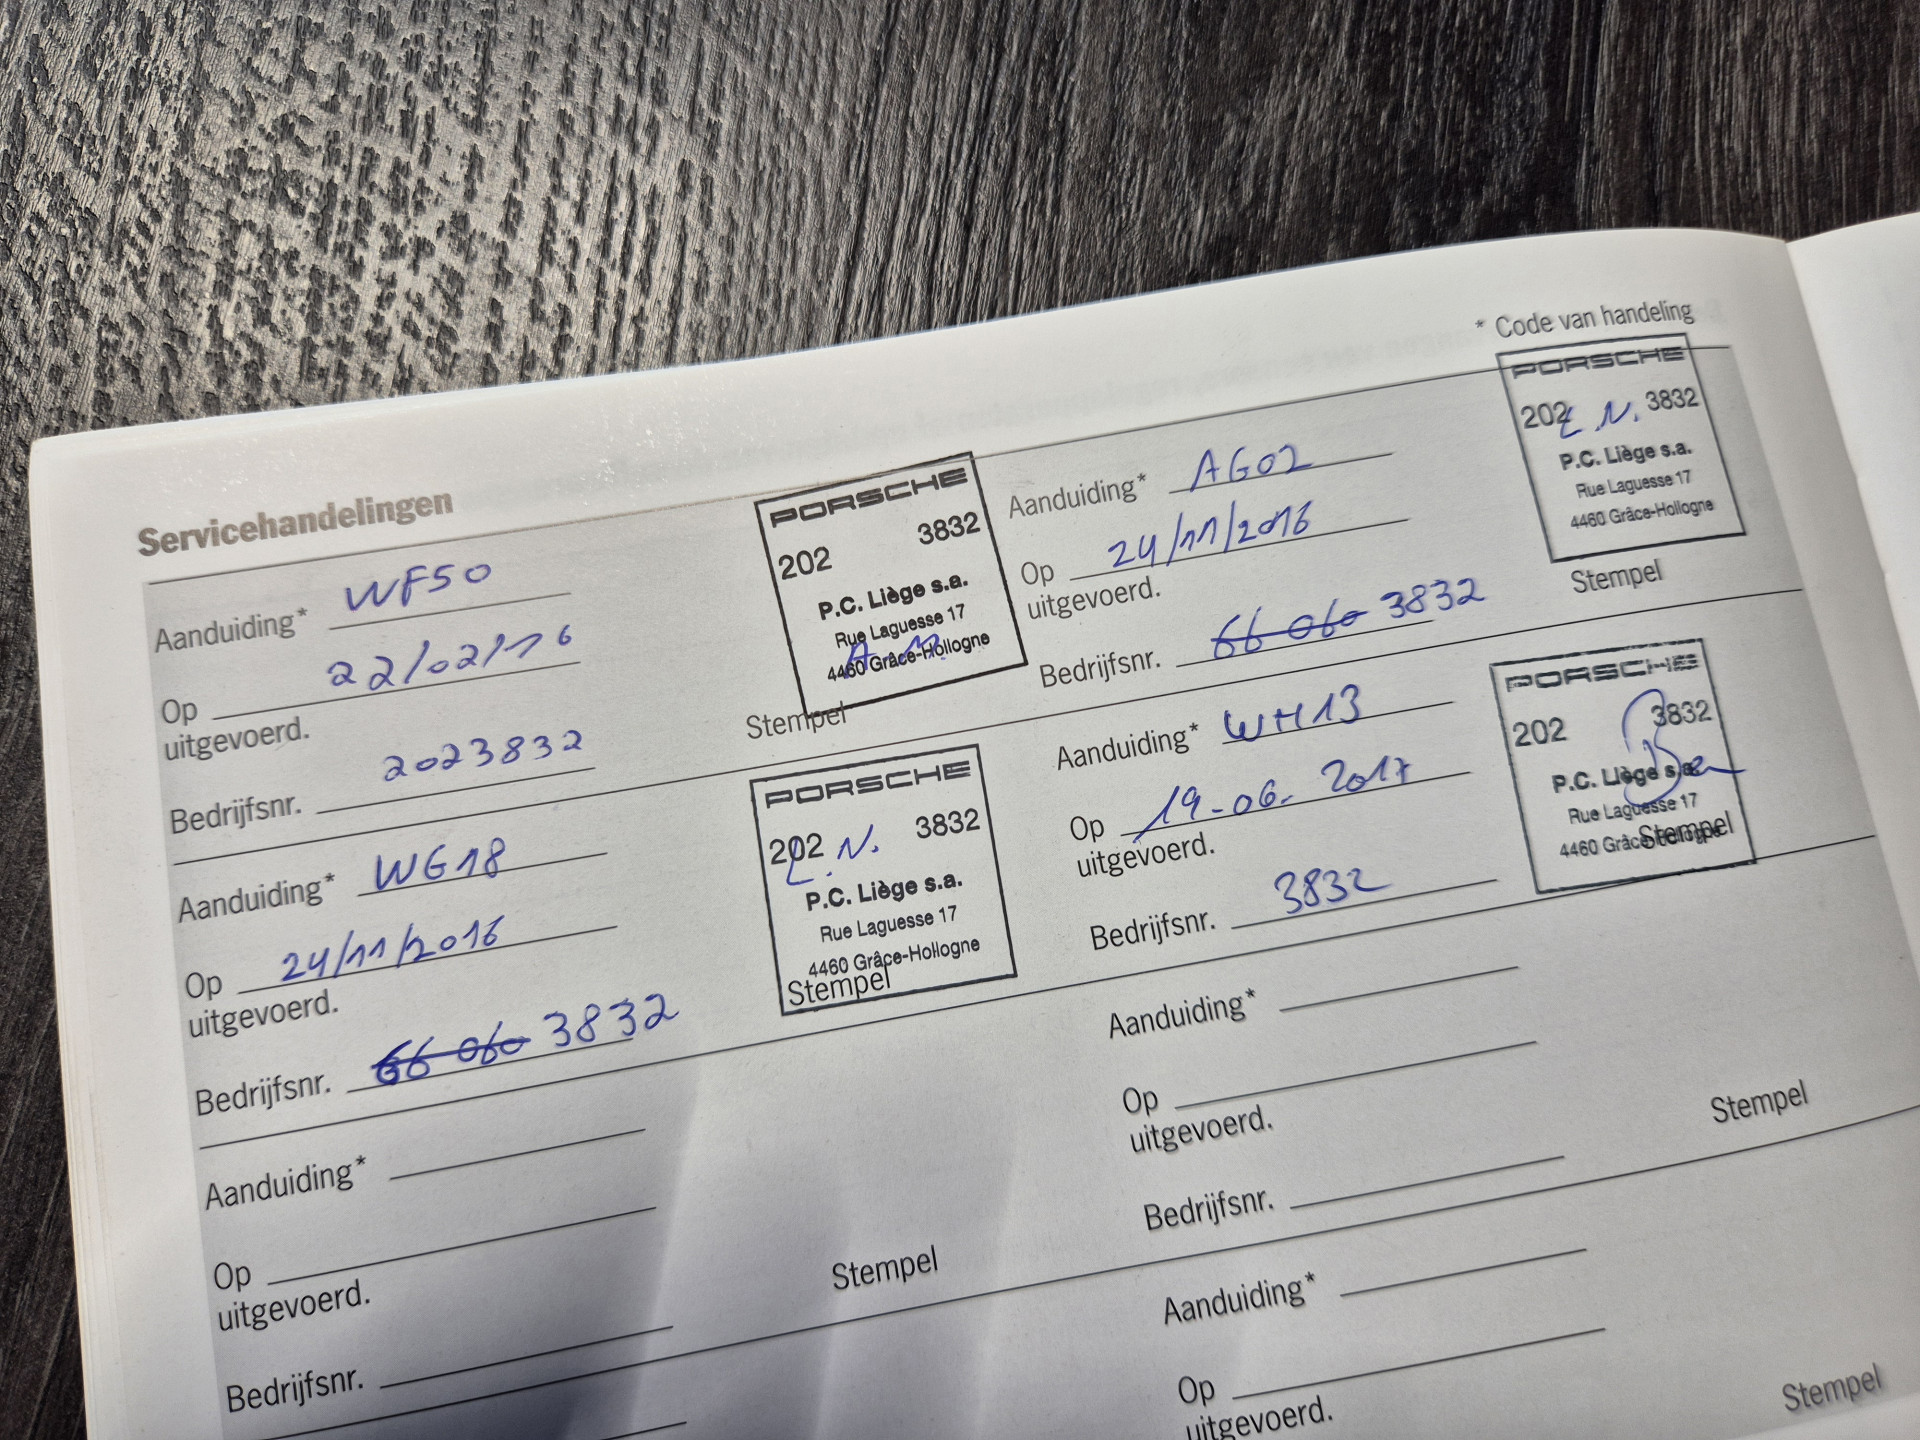 * Code van handeling
Servicehandelingen
Aanduiding* WF50
Op 22/02/16
uitgevoerd.
Bedrijfsnr. 2023832
PORSCHE
202 3832
P.C. Liège s.a.
Rue Laguesse 17
4460 Grâce-Hollogne
Stempel
Aanduiding* WG18
Op 24/11/2016
uitgevoerd.
Bedrijfsnr. 66 060 3832
PORSCHE
202 3832
L. N.
P.C. Liège s.a.
Rue Laguesse 17
4460 Grâce-Hollogne
Stempel
Aanduiding*
Op
uitgevoerd.
Bedrijfsnr.
Stempel
Aanduiding* AG02
Op 24/11/2016
uitgevoerd.
Bedrijfsnr. 66 060 3832
PORSCHE
202 3832
L. N.
P.C. Liège s.a.
Rue Laguesse 17
4460 Grâce-Hollogne
Stempel
Aanduiding* WH13
Op 19-06-2017
uitgevoerd.
Bedrijfsnr. 3832
PORSCHE
202 3832
P.C. Liège s.a.
Rue Laguesse 17
4460 Grâce-Hollogne
Stempel
Aanduiding*
Op
uitgevoerd.
Bedrijfsnr.
Stempel
Aanduiding*
Op
uitgevoerd.
Stempel